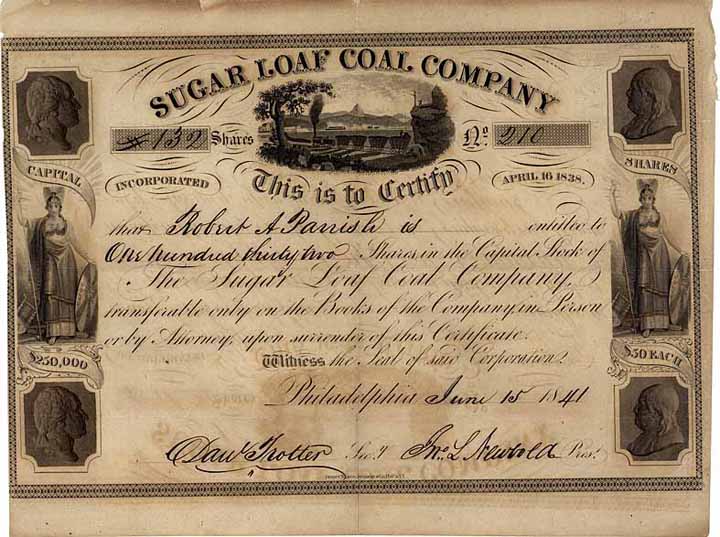 SUGAR LOAF COAL COMPANY
$132 Shares No. 210
CAPITAL SHARES
INCORPORATED APRIL 16 1838.
This is to Certify
that Robert A Parrish is entitled to
One hundred thirty two Shares in the Capital Stock of
The Sugar Loaf Coal Company,
transferable only on the Books of the Company, in Person
or by Attorney, upon surrender of this Certificate.
$250,000 $50 EACH
Witness the Seal of said Corporation.
Philadelphia June 15 1841
Danl Trotter Sec.y Jno. L Newbold Pres.t